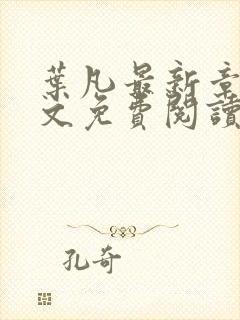 葉凡最新章
文免費閱讀
孔奇